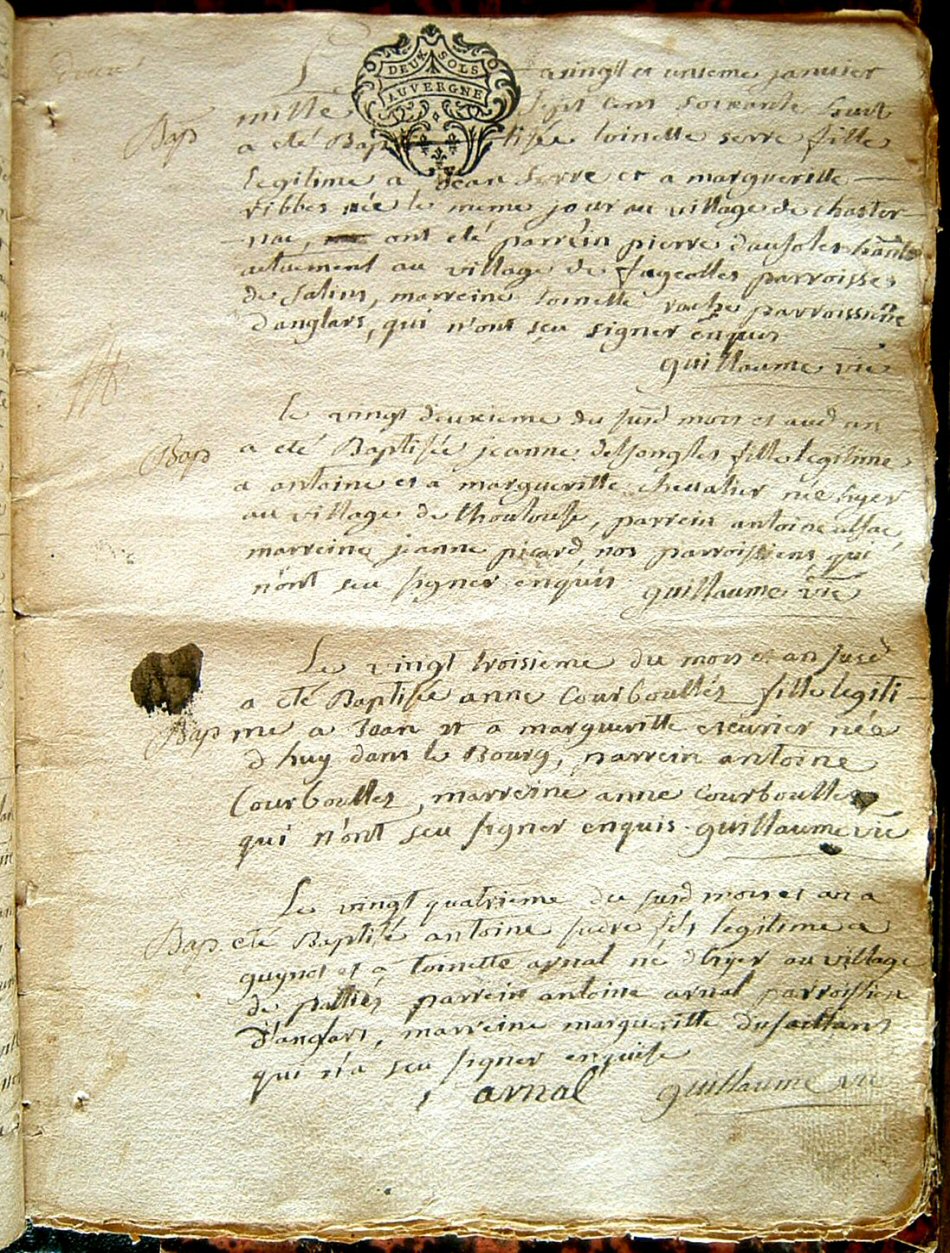 DEUX SOLS
AUVERGNE
L vingt et unieme janvier
mille sept cent soixante huit
Bap
a eté Baptisée toinette serre fille
legitime a Jean Serre et a margueritte
ribbes née le meme jour au village de chaster-
-nac, ont eté parrein pierre dausoles
actuement au village de fageolles parroisse
de salins, marreine toinette parroissiene
d'anglars, qui n'ont seu signer enquis
guillaume vic
Le vingt deuxieme du susd mois et aud an
Bap
a eté Baptisée jeanne delsongles fille legitime
a antoine et a margueritte chevalier née hyer
au village de thoulouse, parrein antoine
marreine jeanne picard nos parroissiens qui
n'ont seu signer enquis guillaume vic
Le vingt troisieme du mois et an susd
a eté Baptisée anne Courboulles fille legiti-
Bap
me a Jean et a margueritte née
d'huy dans le Bourg, parrein antoine
Courboulles, marreine anne Courboulles
qui n'ont seu signer enquis. guillaume vic
Le vingt quatrieme du susd mois et an a
Bap
eté Baptisé antoine fils legitime a
guynot et a toinette arnal né d'hyer au village
de parrein antoine arnal parroissien
d'anglars, marreine margueritte dusaillans
qui n'a seu signer enquise
arnal guillaume vic